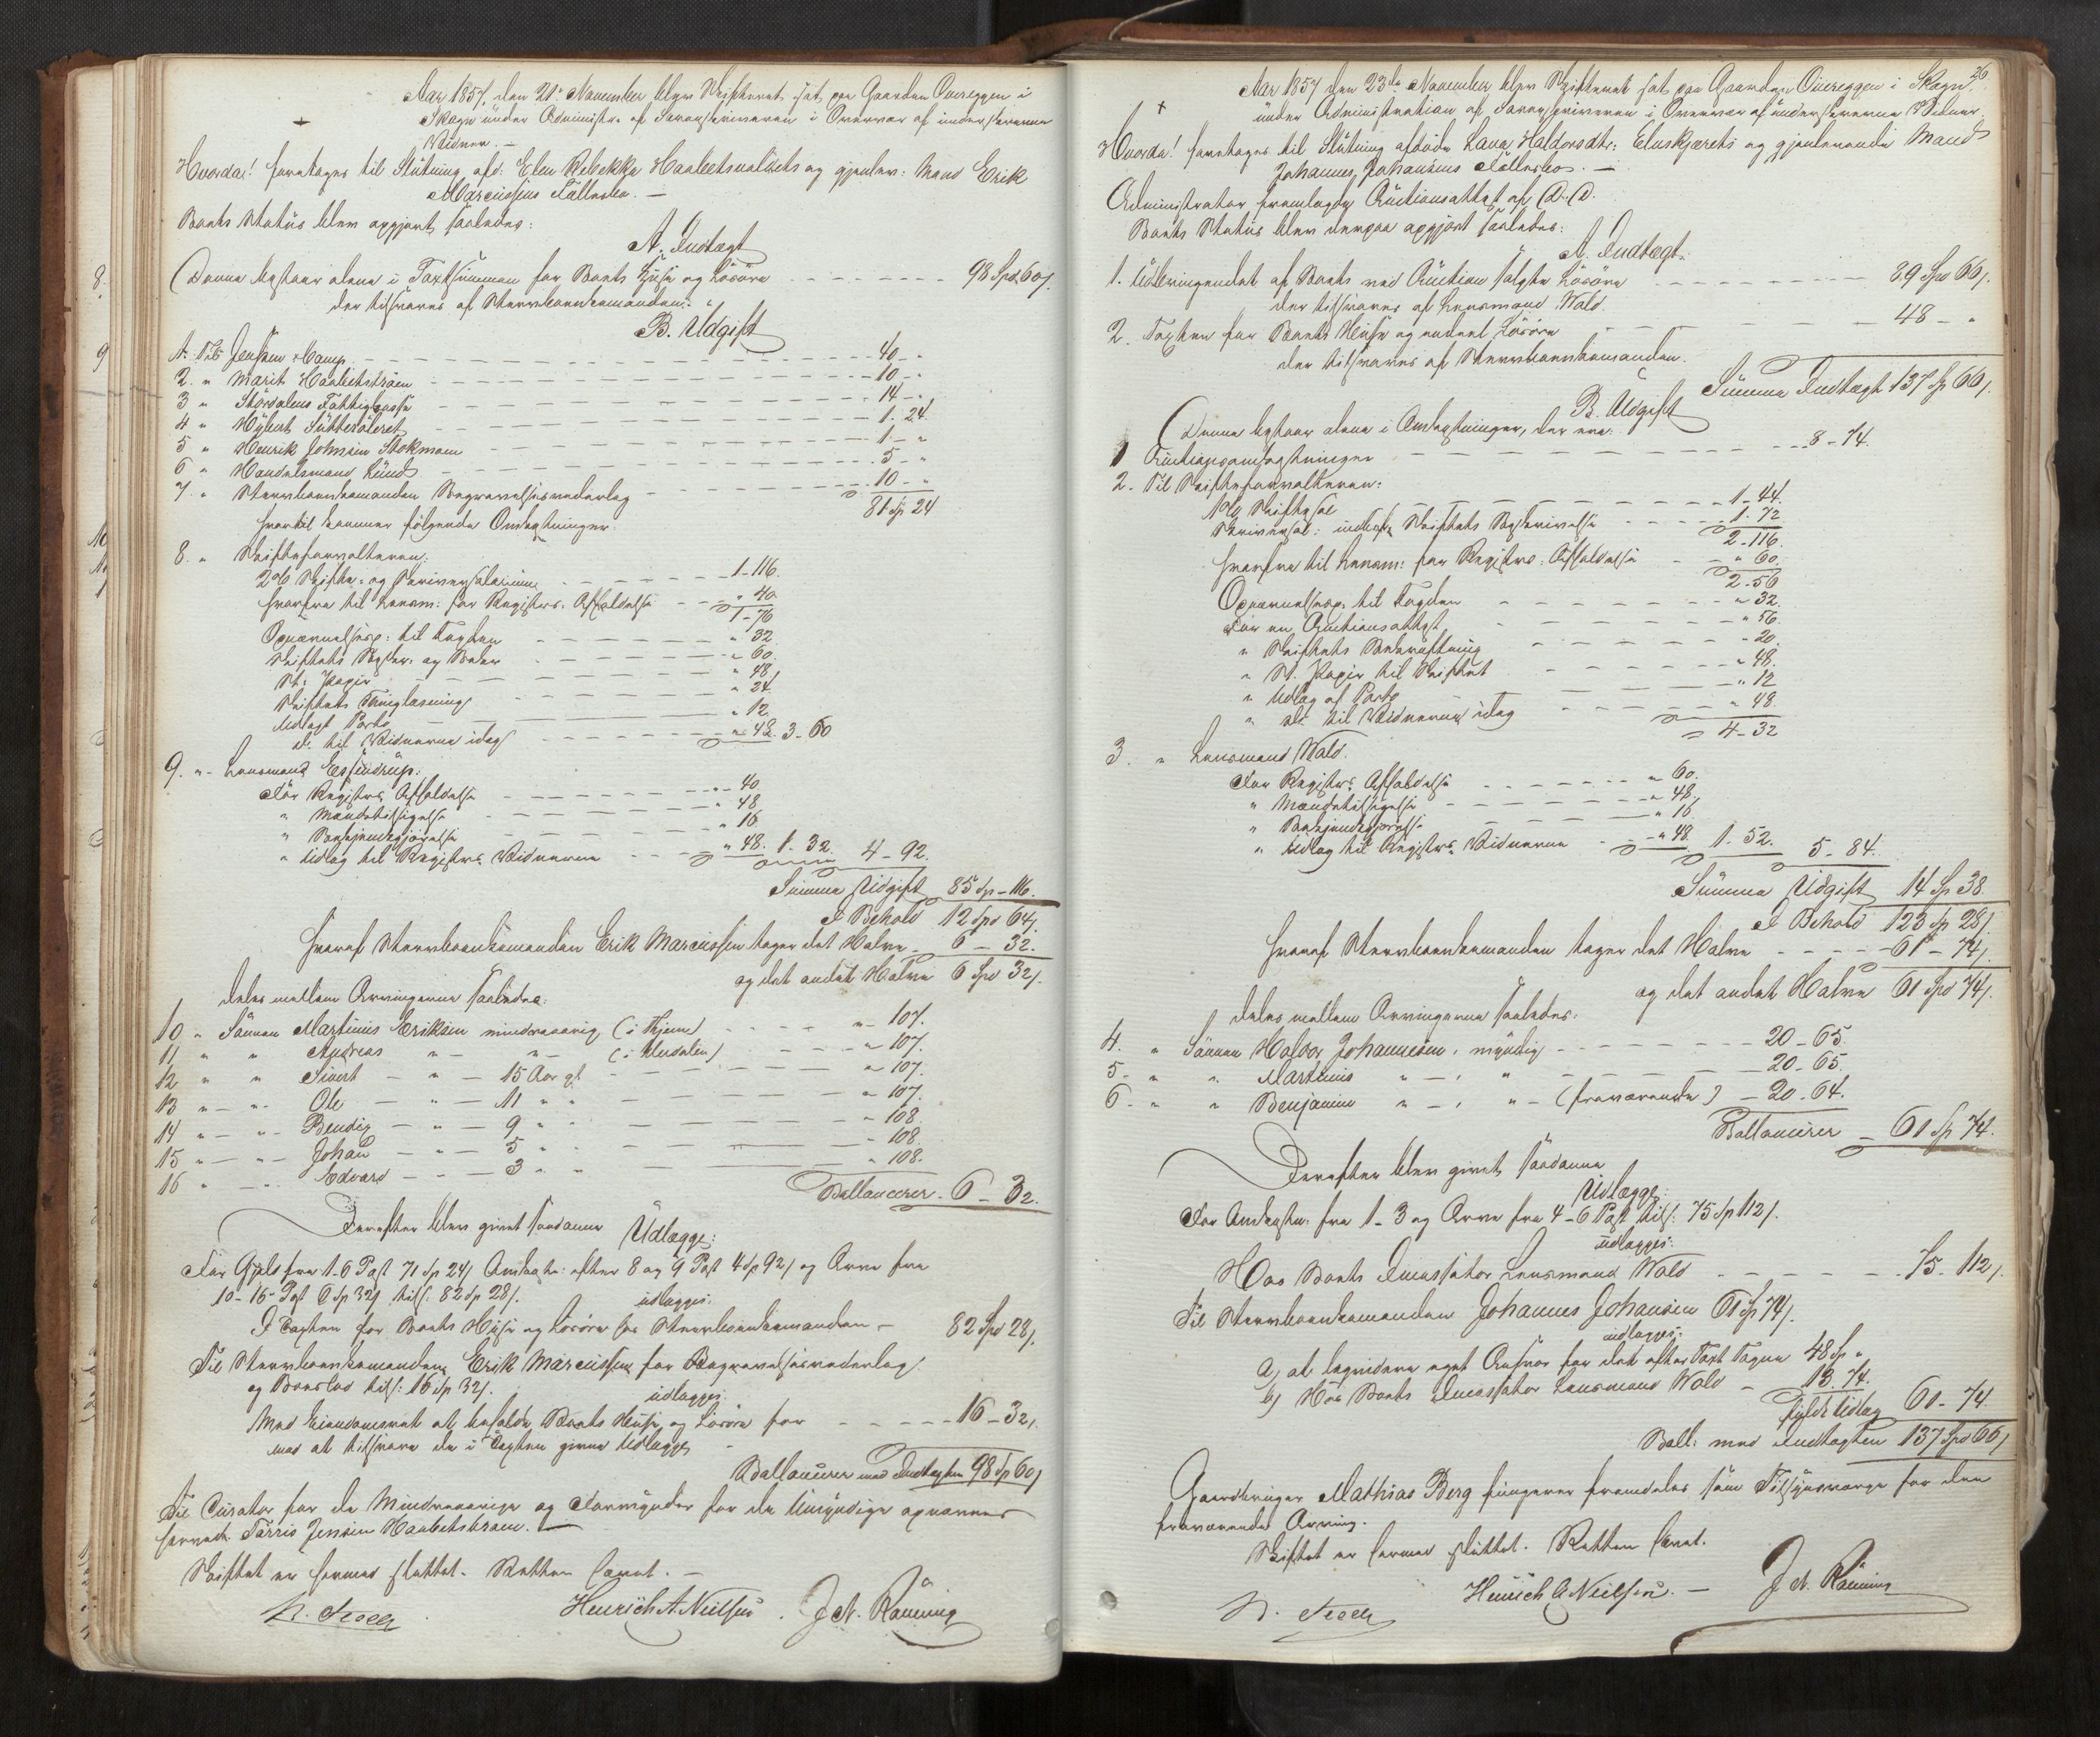 Aar 1857, den 21de November blev Skifteret sat paa Gaarden Overeggen i
Skogn under Administr. af Sorenskriveren i Overvær af underskrevne
Vidner. —
Hvorda! foretages til Slutning afd: Elen Rebekka Haabetsvaldets og gjenlev: Mand Erik
Marcussens Fællesbo. —
Boets Status blev opgjort saaledes:
A. Indtægt
Denne bestaar alene i Taxtsummen for Boets Huse og Løsøre 98 Spd 60 s.
der tilsvares af Stervboenkemanden.
B. Udgift
1. Til Jenssen & Comp. 40 - "
2. " Marit Haabetstrøen 10 - "
3 " Størdalens Fattigkasse 14 - "
4 " 1 - 24
5 " Henrik Johnsen Stokmoen 1 - "
6 " Handelsmand Lund 5 - "
7. " Stervboenkemanden Begravelsesvederlag 10 - "
81 Sp 24
hvortil kommer følgende Omkostninger.
8. " Skifteforvalteren:
2% Skifte- og Skriversalarium 1 - 116.
herfra til Lensm: for Registr. Afholdelse " 40
1 - 76
Opnævnelsesp: til Fogden " 32
Skiftets Beskr: og Boken " 60.
St: Papir " 48
Skiftets Tinglæsning " 24.
Udlagt Porto " 12.
do til Vidnerne idag " 48. 3 - 60
9. " Lensmand Essendrup:
For Registr. Afholdelse " 40
" Mandstilsigelse " 48
" Bekjendtgjørelse " 16
" Udlæg til Registr. Vidnerne " 48. 1. 32. 4 - 92.
Summa Udgift 85 Sp - 116.
I Behold 12 Spd 64 s.
hvoraf Stervboenkemanden Erik Marcussen tager det Halve 6 - 32.
og det andet Halve 6 Spd 32 s.
deles mellem Arvingerne saaledes:
10 " Sønnen Martinus Eriksen mindreaarig (i Hjem) " - 107.
11 " " Andreas " - " - " 107.
12 " " Sivert - " - 15 Aar gl. " 107.
13 " " Ole - " - 11 " " " 107.
14 " " Bendix - " - 9 " " " 108.
15 " " Johan - " - 5 " " " 108.
16 " " Edvard - " - 3 " " " 108.
Ballancerer - 6 - 32.
Derefter blev givet saadanne Udlægge:
For Gjeld fra 1-6 Post 71 Sp 24 s Omkostn: efter 8 og 9 Post 4 Sp 92 s og Arve fra
10 - 16 Post 6 Sp 32 s tils: 82 Sp 28 s.
udlægges:
I Taxten for Boets Huse og Løsøre hos Stervboenkemanden 82 Spd 28 s.
Til Stervboenkemanden Erik Marcussen for Begravelsesvederlag
og Boeslod tils: 16 Sp 32 s.
udlægges:
Med Eiendomsret at beholde Boets Huse og Løsøre for 16 - 32 s.
mod at tilsvare de i Taxten givne Udlægge
Ballancerer med Indtægten 98 Sp 60 s
Til Curator for de Mindreaarige og Formynder for de Umyndige opnævnes
herved Tørris Jensen Haabetstrøen.
Skiftet er hermed sluttet. Retten hævet. —
Henrich A. Nielsen. J. N. Rönning
26
Aar 1857 den 23de November blev Skifteret sat paa Gaarden Overeggen i Skogn
under Administration af Sorenskriveren i Overvær af underskrevne Vidner.
Hvorda! foretages til Slutning afdøde Lava Haldorsdtr: Elveskjærets og gjenlevende Mand
Johannes Johansens Fællesbo. —
Administrator fremlagde Auctionsattest af D. D.
Boets Status blev derpaa opgjort saaledes:
A. Indtægt.
1. Udbringendet af Boets ved Auction solgte Løsøre 89 Spd 66 s.
der tilsvares af Lensmand Wold.
2. Taxten for Boets Huse og andet Løsøre 48 - "
der tilsvares af Stervboenkemanden.
Summa Indtægt 137 Sp 66 s.
B. Udgift
Denne bestaar alene i Omkostninger, der ere:
1 Auctionsomkostninger 8 - 74.
2. Til Skifteforvalteren:
1% Skiftesal 1 - 44.
Skriversal: indbef. Skiftets Beskrivelse 1 - 72
2 - 116.
herfra til Lensm: for Registr. Afholdelse " 60.
2 - 56
Opnævnelsesp. til Fogden " 32.
For en Auctionsattest " 56.
" Skiftets Bekræftning " 20.
" St. Papir til Skiftet " 48.
" Udlæg af Porto " 12
" do til Vidnerne idag " 48.
4 - 32
3. " Lensmand Wold.
For Registr. Afholdelse " 60.
" Mandstilsigelse " 48.
" Bekjendtgjørelse " 16
" Udlæg til Registr. Vidnerne " 48. 1. 52. 5 - 84.
Summa Udgift 14 Sp 38.
I Behold 123 Sp 28 s.
hvoraf Stervboenkemanden tager det Halve 61 - 74 s.
og det andet Halve 61 Spd 74 s.
deles mellem Arvingerne saaledes:
4. " Sønnen Haldor Johannesen, myndig 20 - 65.
5 - " " Martinus " - , " 20 - 65.
6 - " " Benjamin " - , " - (fraværende) 20 - 64.
Ballancerer 61 Sp 74.
Derefter blev givet saadanne
Udlægge:
For Omkostn: fra 1 - 3 og Arve fra 4 - 6 Post tils: 75 Sp 112 s.
udlægges:
Hos Boets Incassator Lensmand Wold 75 - 112 s.
Til Stervboenkemanden Johannes Johansen 61 Sp 74 s.
udlægges:
a) at liqvidere eget Ansvar for det efter Taxt Tagne 48 Sp "
b) Hos Boets Incassator Lensmand Wold 13. 74.
fyldt Udlæg 61 - 74.
Ball: med Indtægten 137 Spd 66 s
Gaardbruger Mathias Berg fungerer fremdeles som Tilsynsværge for den
fraværende Arving.
Skiftet er hermed sluttet. Retten hævet.
Henrich A. Nielsen. — J. N. Rönning